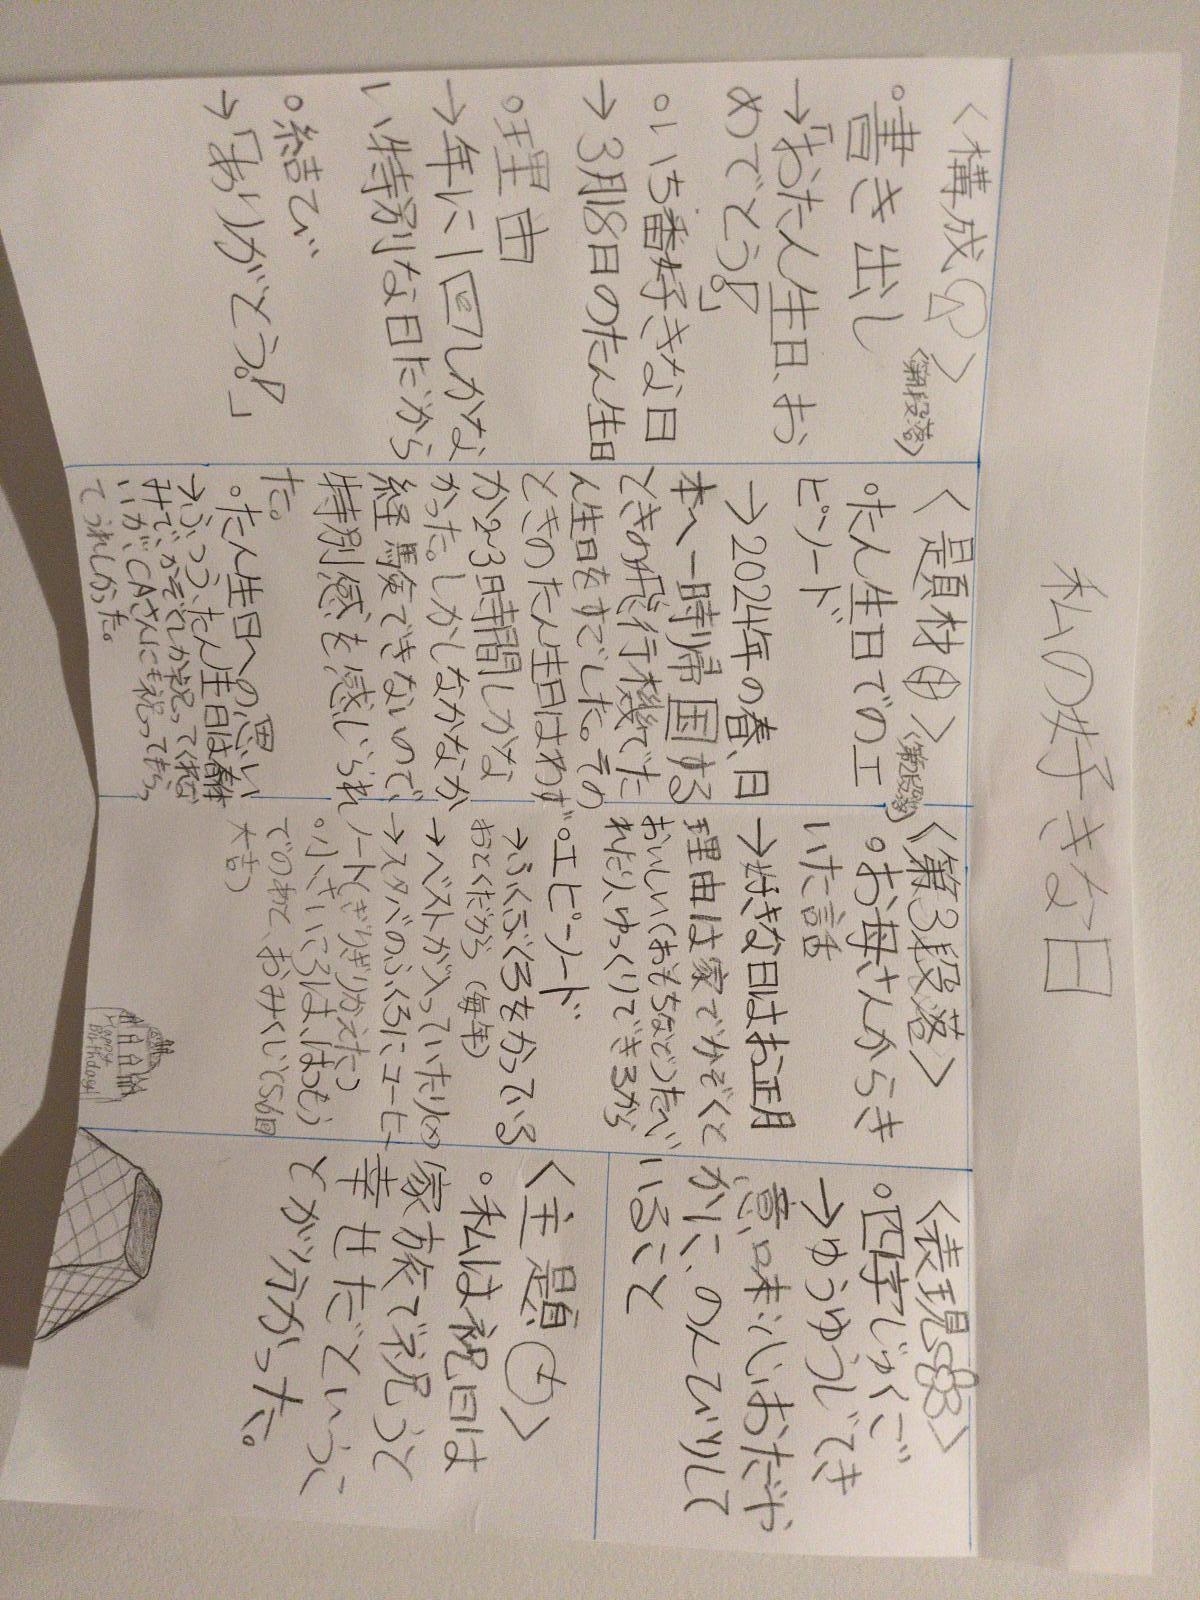 私の好きな日
<構成>
<第1段落>
•書き出し
→「おたん生日、お
めでとう!」
•いち番好きな日
→3月18日のたん生日
•理由
→年に1回しかな
い特別な日だから
•結び
→「ありがとう!」
<題材>
<第2段落>
•たん生日でのエ
ピソード
→2024年の春、日
本へ一時帰国する
ときの飛行機でた
ん生日をすごした。その
ときのたん生日はわず
か2~3時間しかな
かった。しかしなかなか
経験できないので
特別感を感じられ
た。
•たん生日への思い
→ふつう、たん生日は春休
みで、かぞくしか祝ってくれな
いが、CAさんにも祝ってもらっ
てうれしかった。
<第3段落>
•お母さんからき
いた話
→好きな日はお正月
理由は家でかぞくと
おいしい(おもちなど)たべ
れたり、ゆっくりできるから
•エピソード
→ふくぶくろをかっている
おとくだから(毎年)
→ベストが入っていたり
→スタバのふくろにコーヒー
ノート(ぎりぎりかえた)
•小さいころは、はつもう
でのあと、おみくじ(5回
大吉)
Happy
Birthday!
<表現>
•四字じゅくご
→ゆうゆうじてき
意味:心おだや
かに、のんびりして
いること
<主題>
•私は祝日は
家族で祝うと
幸せだというこ
とが分かった。